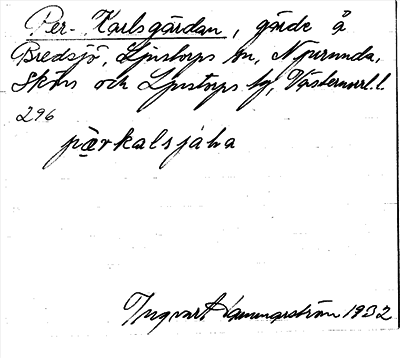 Per-Karlsgärdan, gärde å
Bredsjö, Ljustorps sn, Njurunda,
Sköns och Ljustorps tg, Västernorrl. l.
296
pärkalsjáḷa
Ingvart Hammarström 1932